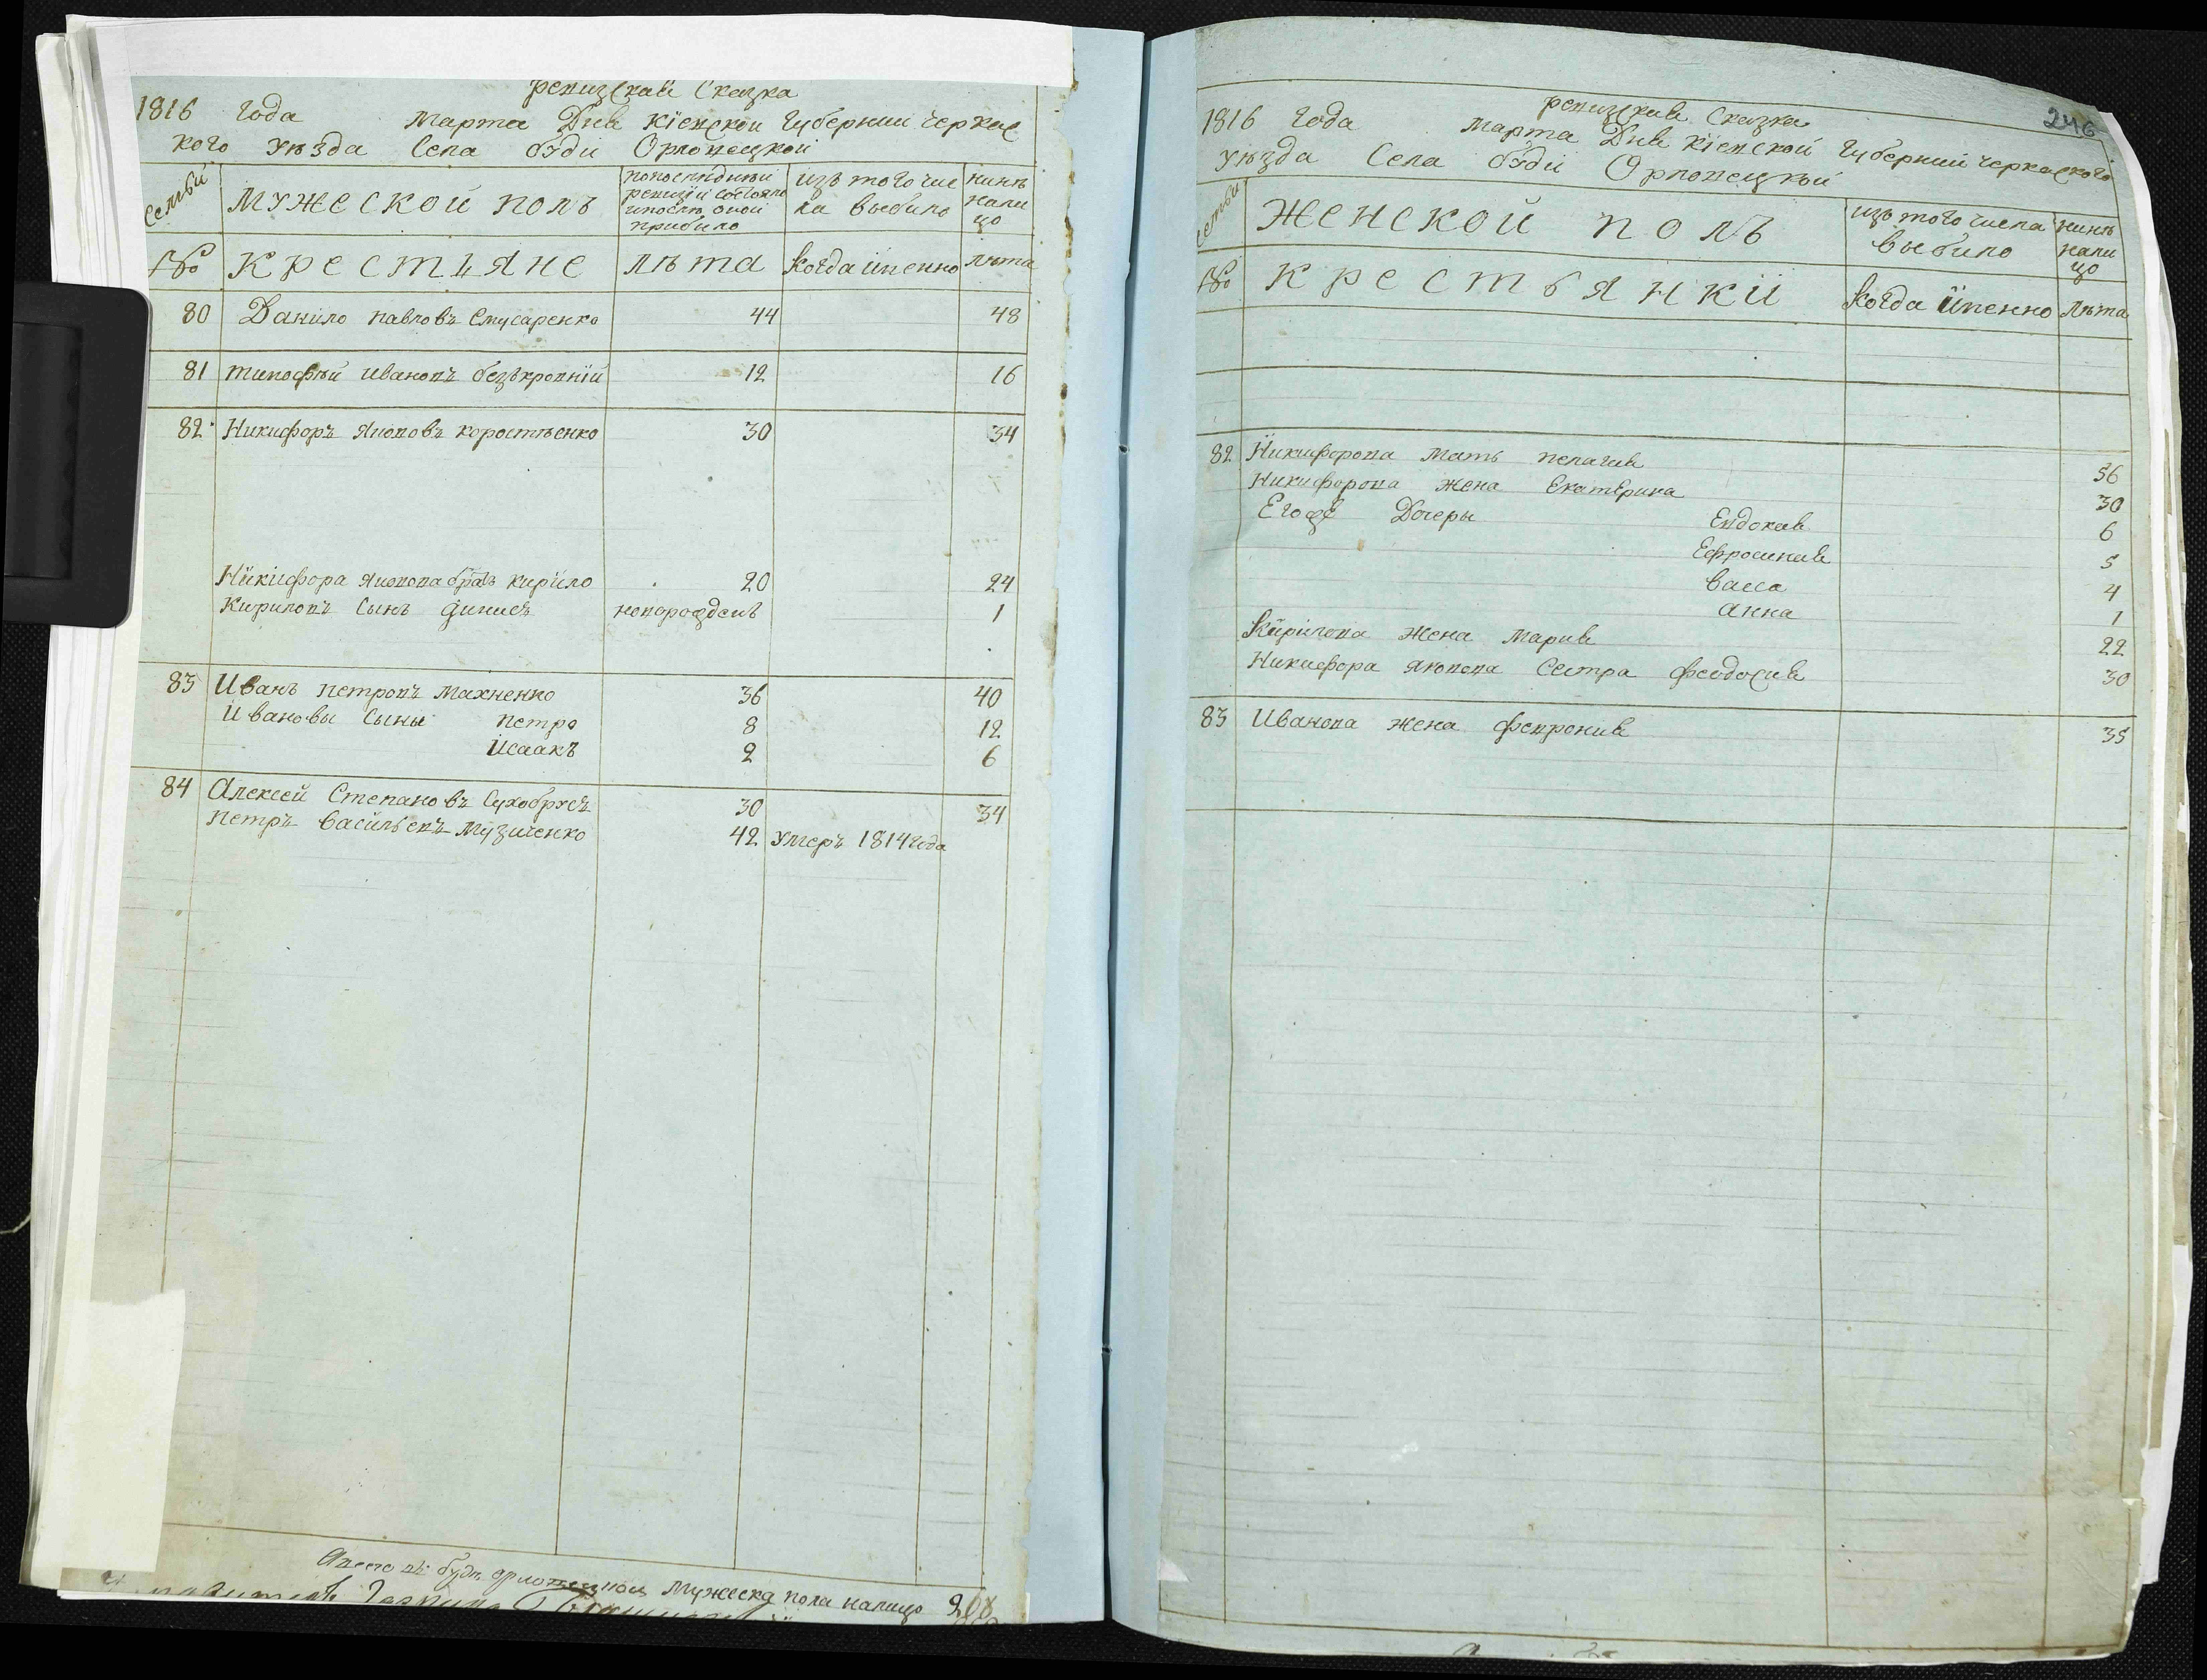 ревизская сказка
1816 года марта дня кіевской губерніи черкас
кого уезда села буди Орловецкой
семьи
мужеской полъ
попоследнѣй ревизіи состояло ипослѣ оной прибило
изъ того чис ла выбило
нинѣ нали цо
№ крестьяне лѣта когда имено лѣта
80 Данило павловъ Смусаренко 44 48
81 тимофѣй ивановъ безъкровній 12 16
82 Никифоръ якововъ коростѣенко 30 34
Никифора яковова братъ кирило 20 24
Кириловъ сынъ динисъ новорожденъ 1
83 Иванъ петровъ махненко 36 40
Ивановы сыны петро 8 12
Исаакъ 2 6
84 Алексей Степановъ Сухобрусъ 30 34
петръ васильевъ музиченко 42 умеръ 1814 года
Авсего въ буди орловецкой мужеска пола налицо
246
ревизская сказка
1816 года марта дня кіевской губерніи черкаского
уезда села буди Орловецкой
семьи
женской полъ
изъ того числа выбило
нинѣ нали цо
№ крестьянки когда имено лѣта
82 Никифорова мать пелагия 56
Никифорова жена екатерина 30
Егоже дочеры Евдокия 6
Ефросиния 5
васса 4
анна 1
Кирилова жена мария 22
Никифора яковова сестра феодосия 30
83 Иванова жена феврония 35